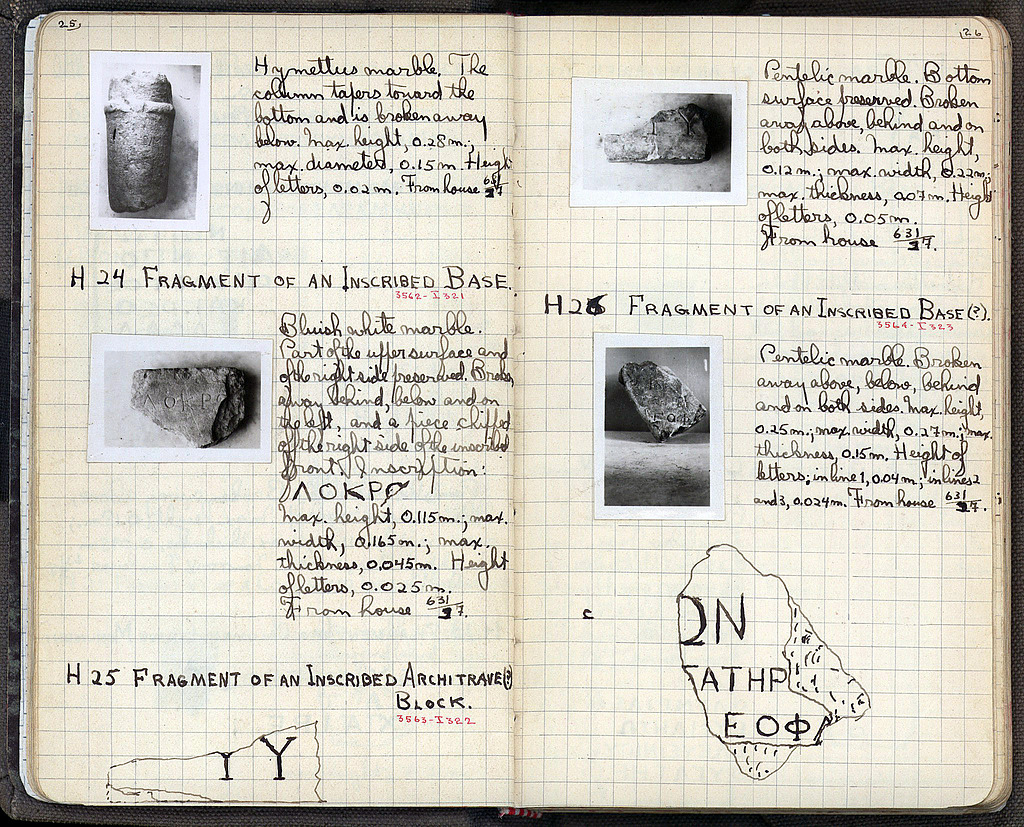 25,
Hymettus marble. The
column tapers toward the
bottom and is broken away
below. Max. height, 0.28 m.;
max. diameter, 0.15 m. Height
of letters, 0.02 m. From house 631/37.
H 24 FRAGMENT OF AN INSCRIBED BASE.
3562-I 321
Bluish white marble.
Part of the upper surface and
of the right side preserved. Broken
away behind, below and on
the left, and a piece chipped
off the right side of the inscribed
front. Inscription:
ΛΟΚΡΟ
Max. height, 0.115 m.; max.
width, 0.165 m.; max.
thickness, 0.045 m. Height
of letters, 0.025 m.
From house 631/37.
H 25 FRAGMENT OF AN INSCRIBED ARCHITRAVE(?)
BLOCK.
3563-I 322
Ι Υ
26
Pentelic marble. Bottom
surface preserved. Broken
away above, behind and on
both sides. Max. height,
0.12 m.; max. width, 0.22 m.;
max. thickness, 0.07 m. Height
of letters, 0.05 m.
From house 631/37.
H 26 FRAGMENT OF AN INSCRIBED BASE (?).
3564-I 323
Pentelic marble. Broken
away above, below, behind
and on both sides. Max. height,
0.25 m.; max. width, 0.27 m.; max.
thickness, 0.15 m. Height of
letters; in line 1, 0.04 m.; in lines 2
and 3, 0.024 m. From house 631/37.
c
ΩΝ
ΓΑΤΗΡ
ΕΟΦΙ